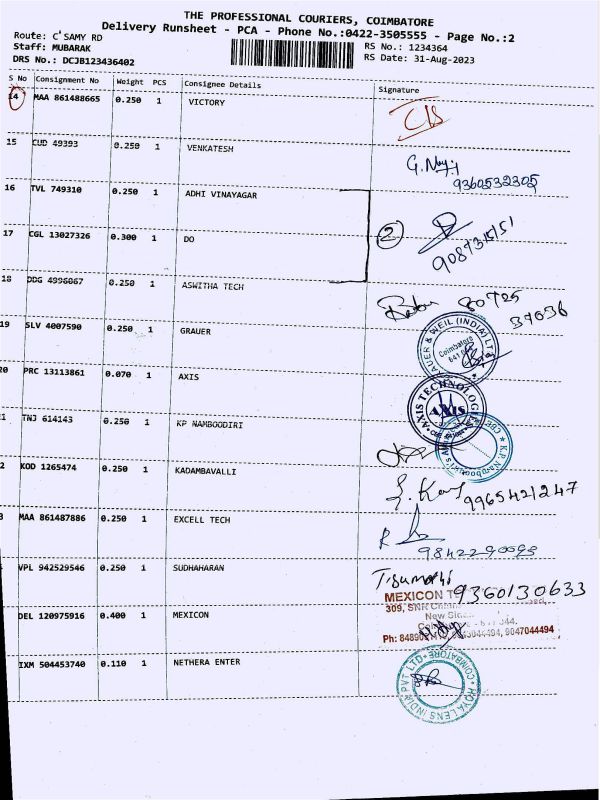 THE PROFESSIONAL COURIERS, COIMBATORE
Delivery Runsheet - PCA - Phone No.:0422-3505555 - Page No.:2
Route: C'SAMY RD
RS No.: 1234364
Staff: MUBARAK
RS Date: 31-Aug-2023
DRS No.: DCJB123436402
S No Consignment No Weight PCS Consignee Details Signature
14 MAA 861488665 0.250 1 VICTORY
15 CUD 49393 0.250 1 VENKATESH
9360532305
16 TVL 749310 0.250 1 ADHI VINAYAGAR
17 CGL 13027326 0.300 1 DO 2
18 DDG 4996067 0.250 1 ASWITHA TECH
80725
37036
19 SLV 4007590 0.250 1 GRAUER
AUER & WEIL (INDIA) LT
Coimbatore
20 PRC 13113861 0.070 1 AXIS
AXIS TECHNOLOG
AXIS
1 TNJ 614143 0.250 1 KP NAMBOODIRI
K.P. Namboodiri's
CBE
2 KOD 1265474 0.250 1 KADAMBAVALLI
9965421247
3 MAA 861487886 0.250 1 EXCELL TECH
VPL 942529546 0.250 1 SUDHAHARAN
9360130633
DEL 120975916 0.400 1 MEXICON
MEXICON
309, SNR
New
044.
9047044494
IXM 504453740 0.110 1 NETHERA ENTER
HOYA LENS INDIA PVT LTD
COIMBATORE